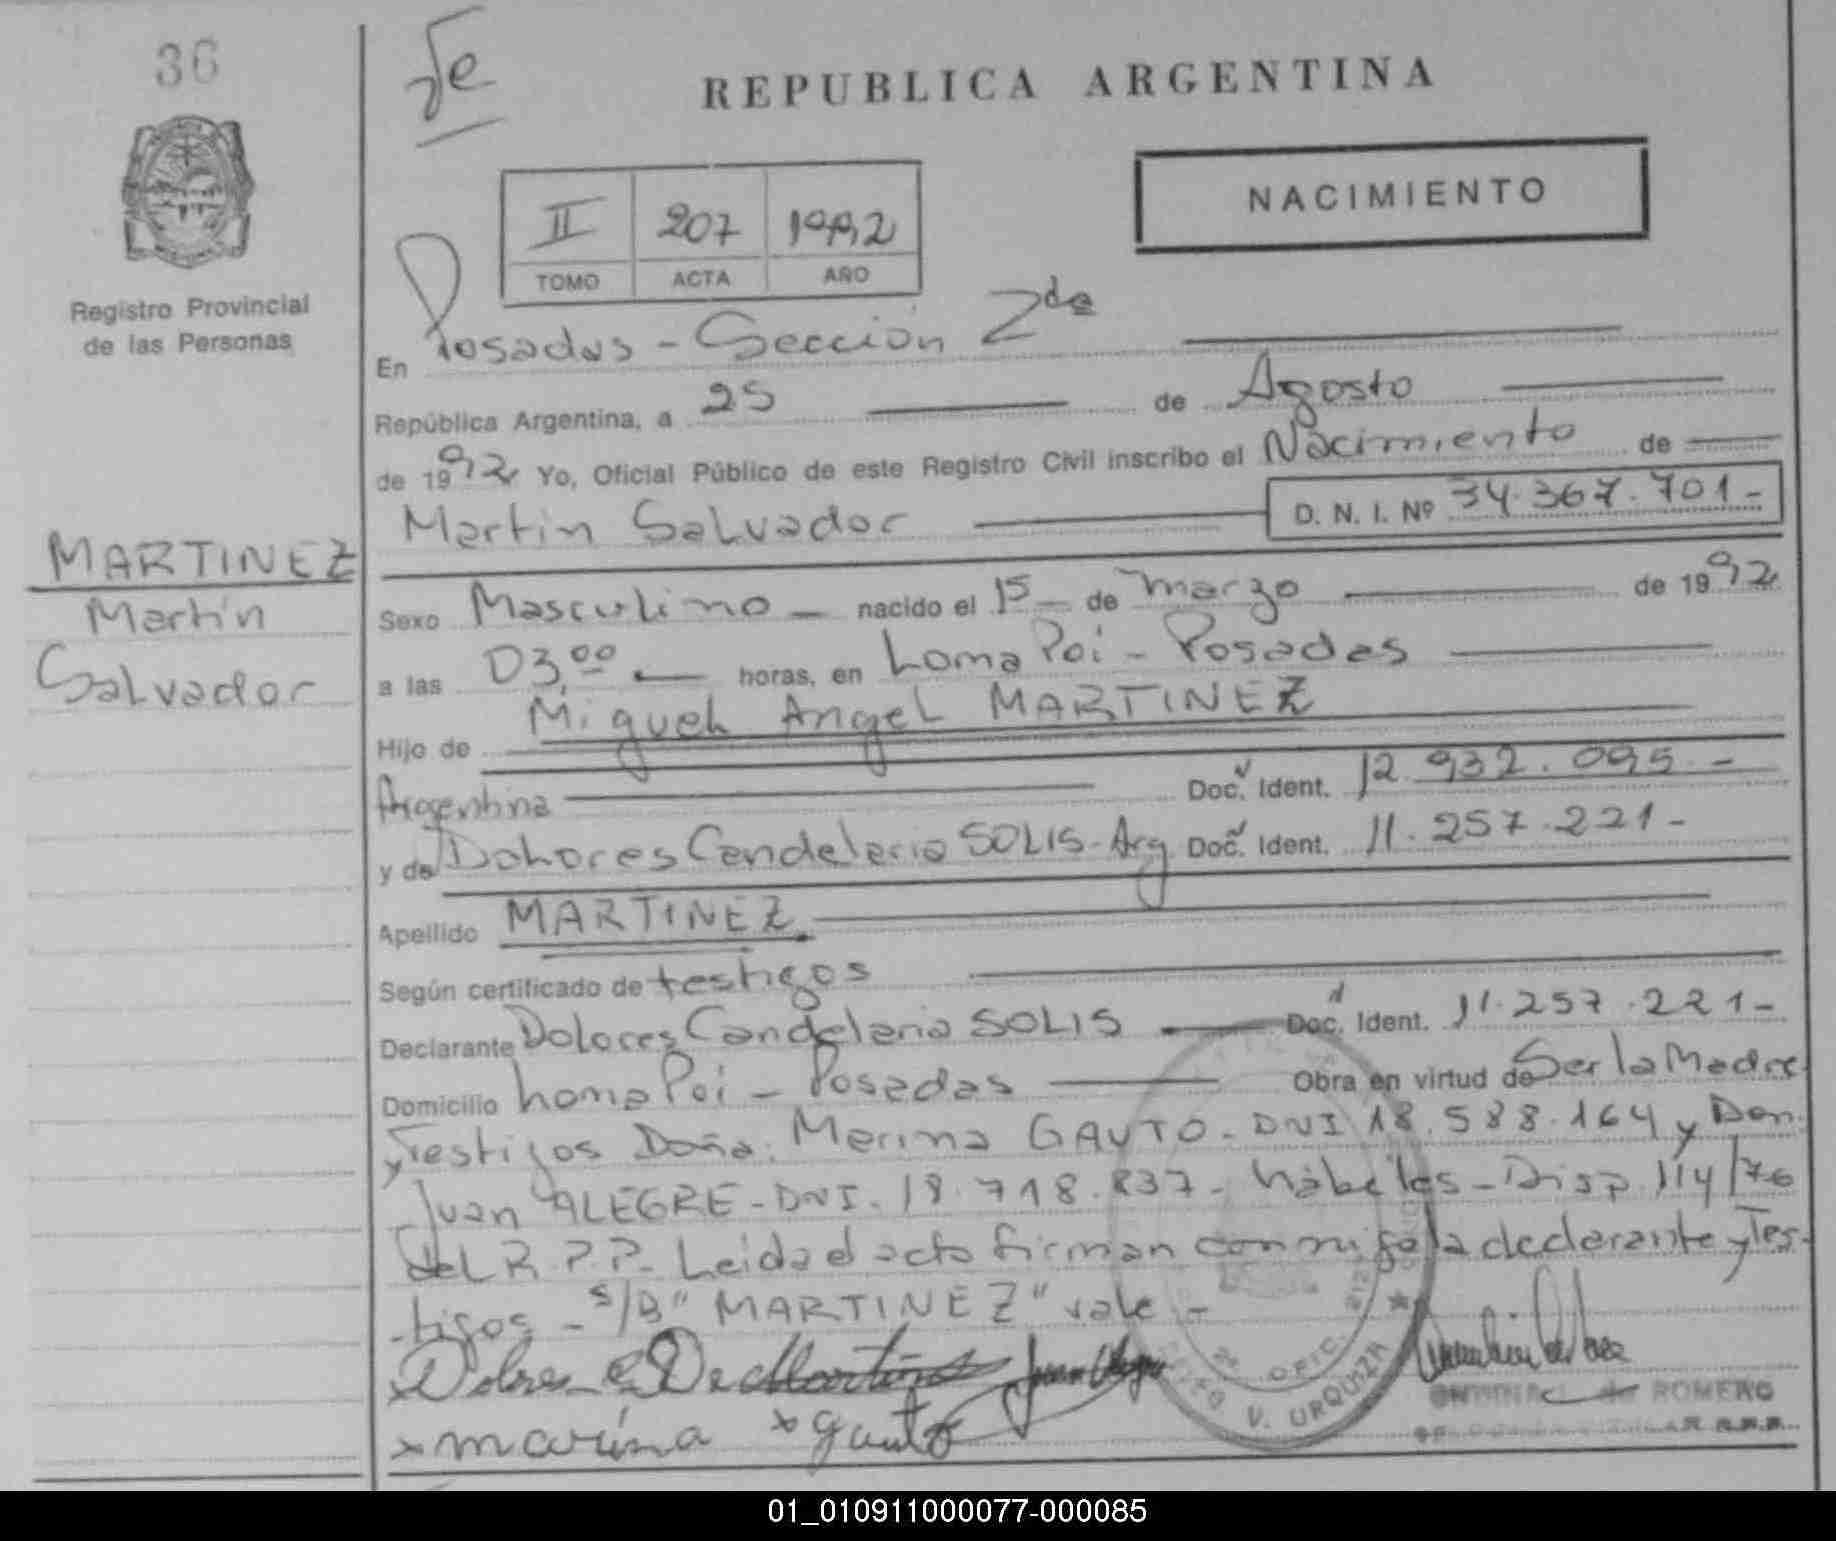 36
Registro Provincial
de las Personas
MARTINEZ
Martín
Salvador
REPUBLICA ARGENTINA
NACIMIENTO
II 207 1992
TOMO ACTA AÑO
En Posadas - Sección 2da
República Argentina, a 25 de Agosto
de 1992 Yo, Oficial Público de este Registro Civil inscribo el Nacimiento de
Martín Salvador D. N. I. Nº 34.367.701-
Sexo Masculino - nacido el 15 - de marzo de 1992
a las 03,00 horas, en Loma Poi - Posadas
Hijo de Miguel Angel MARTINEZ
Argentina Doc. Ident. 12.932.095.-
y de Dolores Candelaria SOLIS - Arg Doc. Ident. 11.257.221-
Apellido MARTINEZ
Según certificado de testigos
Declarante Dolores Candelaria SOLIS Doc. Ident. 11.257.221-
Domicilio Loma Poi - Posadas Obra en virtud de Ser la Madre
y Testigos Doña: Marina GAUTO - DNI 18.588.164 y Don
Juan ALEGRE - DNI. 18.718.837 - hábiles - Disp. 114/76
del R.P.P. Leida el acta firman conmigo la declarante y Tes-
tigos - S/B "MARTINEZ" vale -
x Dolores S De Martinez Juan Alegre
x marina x gauto
2ª OFIC.
V. URQUIZA
de ROMERO
01_010911000077-000085